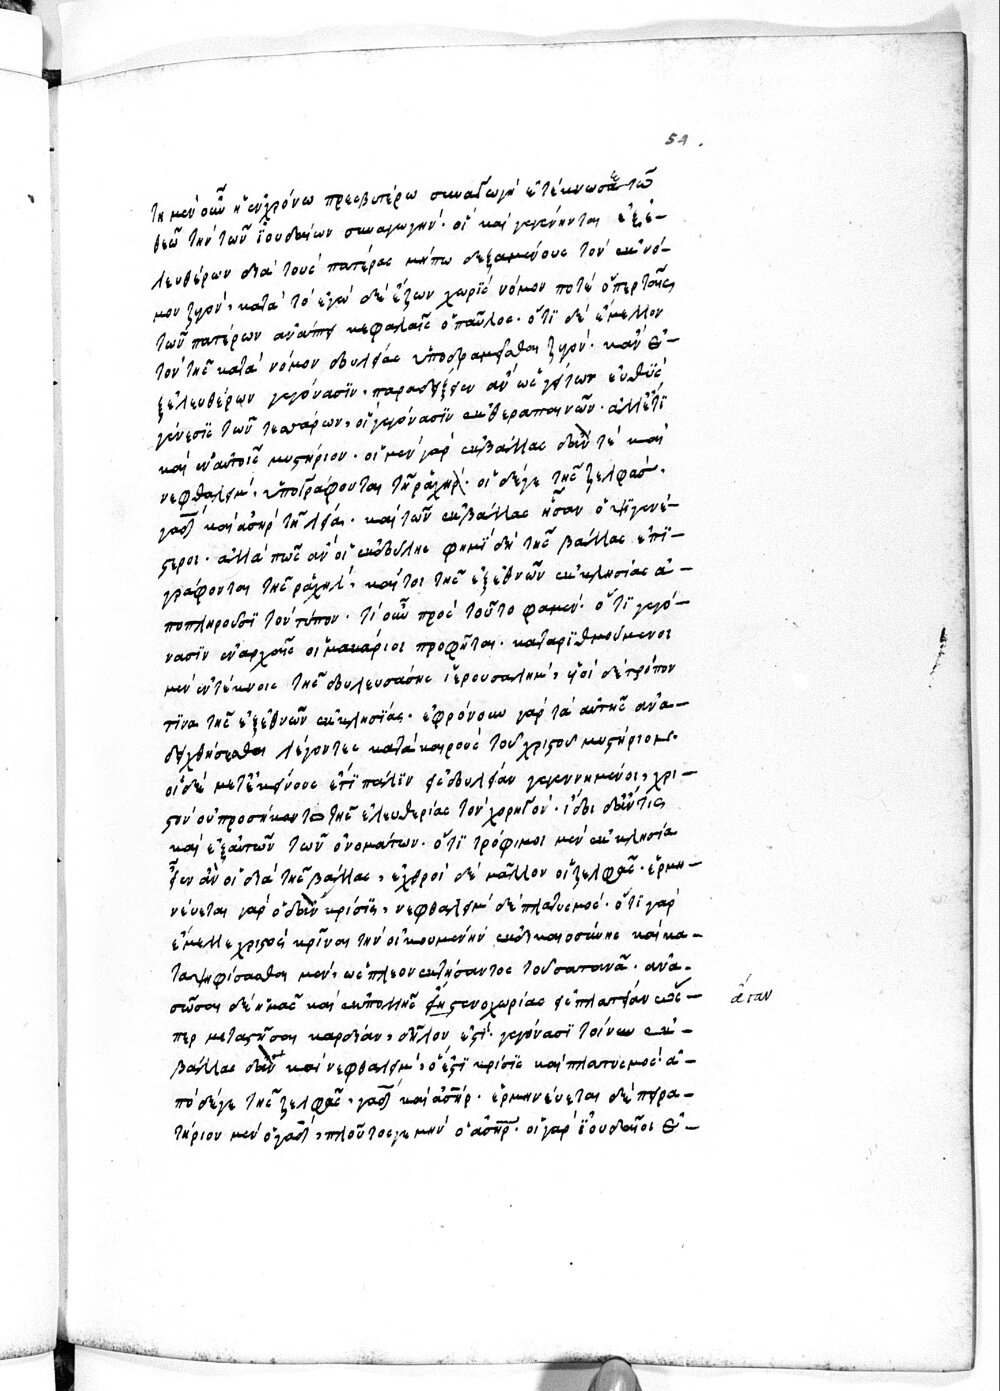 54.
τῆ μὲν οὖν ἡ ἐν χρόνω πρεσβυτέρω συναγωγὴ ἐτέκνωσε τῶ
θεῶ τὴν τῶν ἰουδαίων συναγωγήν· οἳ καὶ γεγένηνται ἐξ ἐ-
λευθέρων διὰ τοὺς πατέρας μήπω δεξαμένους τὸν ἐν νό-
μον ζυγόν, κατὰ τὸ ἐγὼ δὲ ἔζων χωρὶς νόμου ποτὲ ὅπερ ταῖς
τῶν πατέρων ἀνάπτει κεφαλαῖς ὁ παῦλος· ὅτι δὲ ἔμελλον
τὸν τῆς κατὰ νόμον δουλείας ὑποδραμεῖσθαι ζυγόν· κἂν ἐ-
ξ ἐλευθέρων γεγόνασϊν, παραδείξειεν ἂν ὡς ἐγγίστων εὐθὺς
γένεσις τῶν τεσσάρων, οἳ γεγόνασϊν ἐκ θεραπαινῶν· ἀλλ' ἔτι
καὶ ἐν αὐτοῖς μυστήριον· οἱ μὲν γὰρ ἐκ βάλλας δὰν τὲ καὶ
νεφθαλεὶμ, ὑπογράφονται τῆ ῥαχήλ· οἱ δέγε τῆς ζελφᾶς,
γὰδ καὶ ἀσὴρ τῆ λείᾳ· καὶ τῶν ἐκ βάλλας ἦσαν ὀψιγενέ-
στεροι· ἀλλὰ πῶς ἂν οἱ ἐκ δούλης φημὶ δὴ τῆς βάλλας ἐπι-
γράφονται τῆς ῥαχὴλ, καίτοι τῆς ἐξ ἐθνῶν ἐκκλησίας ἀ-
ποπληρούσῃ τὸν τύπον· τί οὖν πρὸς τοῦτο φαμέν· ὅτι γεγό-
νασϊν ἐν ἀρχαῖς οἱ μακάριοι προφῆται· καταριθμούμενοι
μὲν ἐν τέκνοις τῆς δουλευσάσης ἱερουσαλὴμ, υἱοὶ δὲ τρόπον
τινα τῆς ἐξ ἐθνῶν ἐκκλησίας· ἐφρόνουν γὰρ τὰ αὐτῆς ἀνα-
δειχθήσεσθαι λέγοντες κατὰ καιροὺς τοῦ χριστοῦ μυστήριον·
οἱ δὲ μετ' ἐκείνους ἐπὶ πάλιν εἰς δουλείαν γεγεννημένοι, χρι-
στὸν οὐ προσήκαντο τῆς ἐλευθερίας τὸν χορηγόν· ἴδοι δ' ἄν τις
καὶ ἐξ αὐτῶν τῶν ὀνομάτων· ὅτι τρόφιμοι μὲν ἐκκλησία
εἶεν ἂν οἱ διὰ τῆς βάλλας, ἐχθροὶ δὲ μᾶλλον οἱ ζελφᾶς· ἑρμη-
νεύεται γὰρ ὁ δὰν κρίσϊς, νεφθαλεὶμ δὲ πλατυσμός· ὅτι γὰρ
ἔμελλε χριστὸς κρῖναι τὴν οἰκουμένην ἐν δικαιοσύνη καὶ κα-
ταψηφίσασθαι μὲν, ὡς πλεονεκτήσαντος τοῦ σατανᾶ· ἀνα-
σῶσαι δὲ ἡμᾶς καὶ ἐκ πολλῆς τῆς στενοχωρίας εἰς πλατεῖαν ὥσ-
ἄταν
περ μεταστῆσαι καρδίαν, δῆλον ἐστὶ· γεγόνασι τοίνυν ἐκ
βάλλας δὰν καὶ νεφθαλεὶμ, ὅ ἐστι κρίσις καὶ πλατυσμός· ἀ-
πὸ δέγε τῆς ζελφᾶς, γὰδ καὶ ἀσὴρ· ἑρμηνεύεται δὲ πειρα-
τήριον μὲν ὁ γὰδ, πλοῦτος γε μὴν ὁ ἀσὴρ· οἱ γὰρ ἰουδαῖοι ἐ-